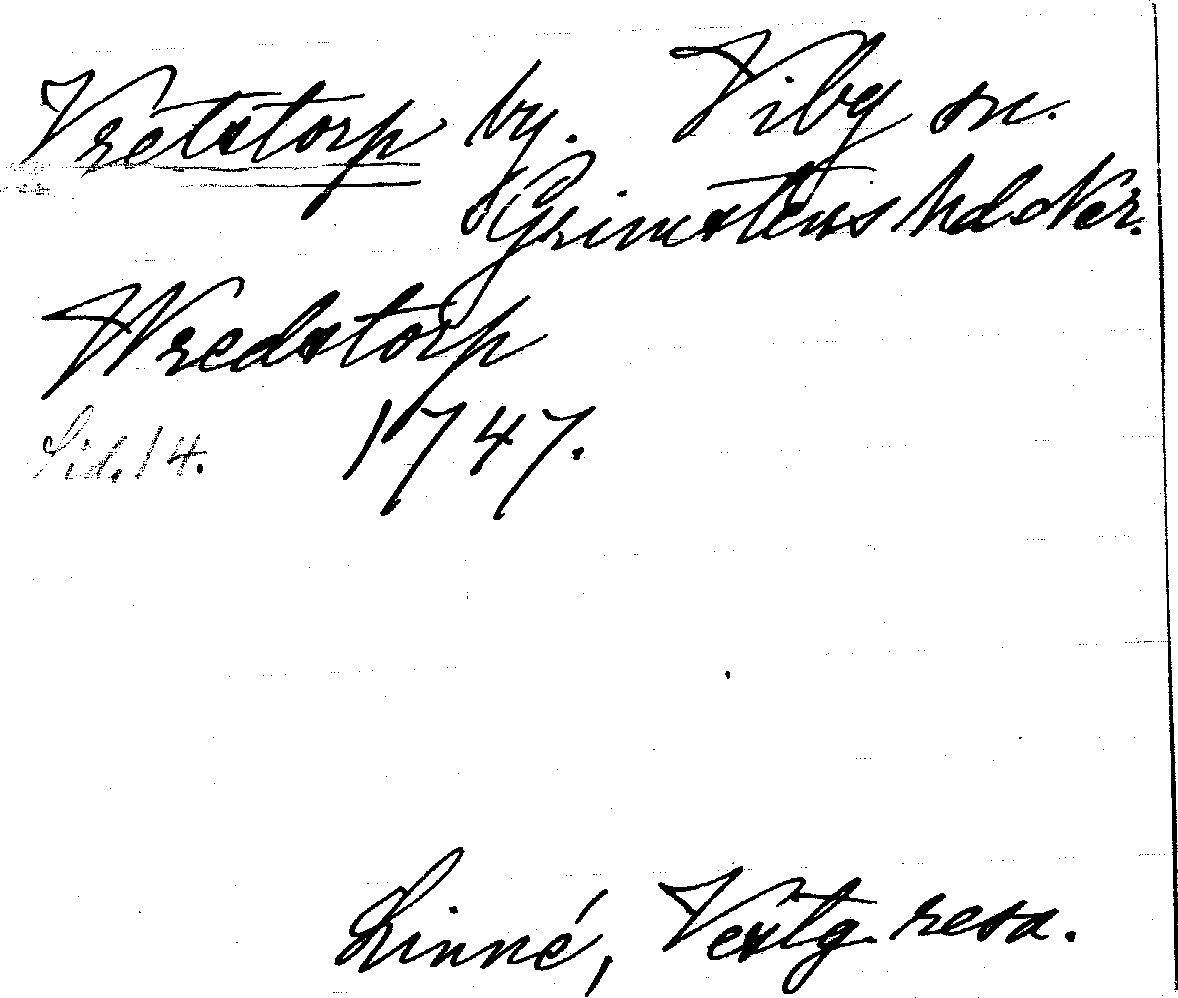 Vretstorp by. Viby sn.
Grimstens hd Ner.
Wredstorp
Sid. 14. 1747.
Linné, Vestg. resa.